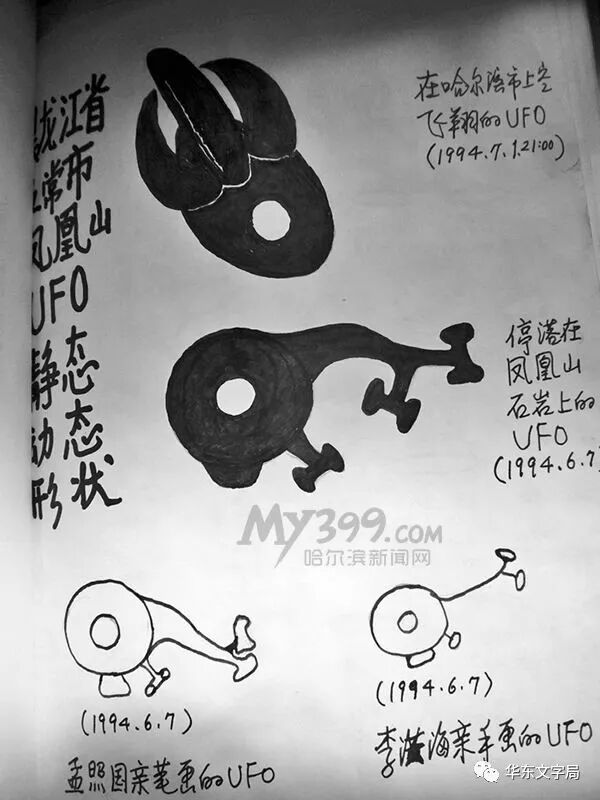 黑龙江省
五常市
凤凰山
UFO
静态
动态
形状
在哈尔滨市上空
飞翔的UFO
(1994.7.1.21:00)
停落在
凤凰山
石岩上的
UFO
(1994.6.7)
My399.COM
哈尔滨新闻网
(1994.6.7)
孟照国亲笔画的UFO
(1994.6.7)
李洪海亲手画的UFO
华东文字局